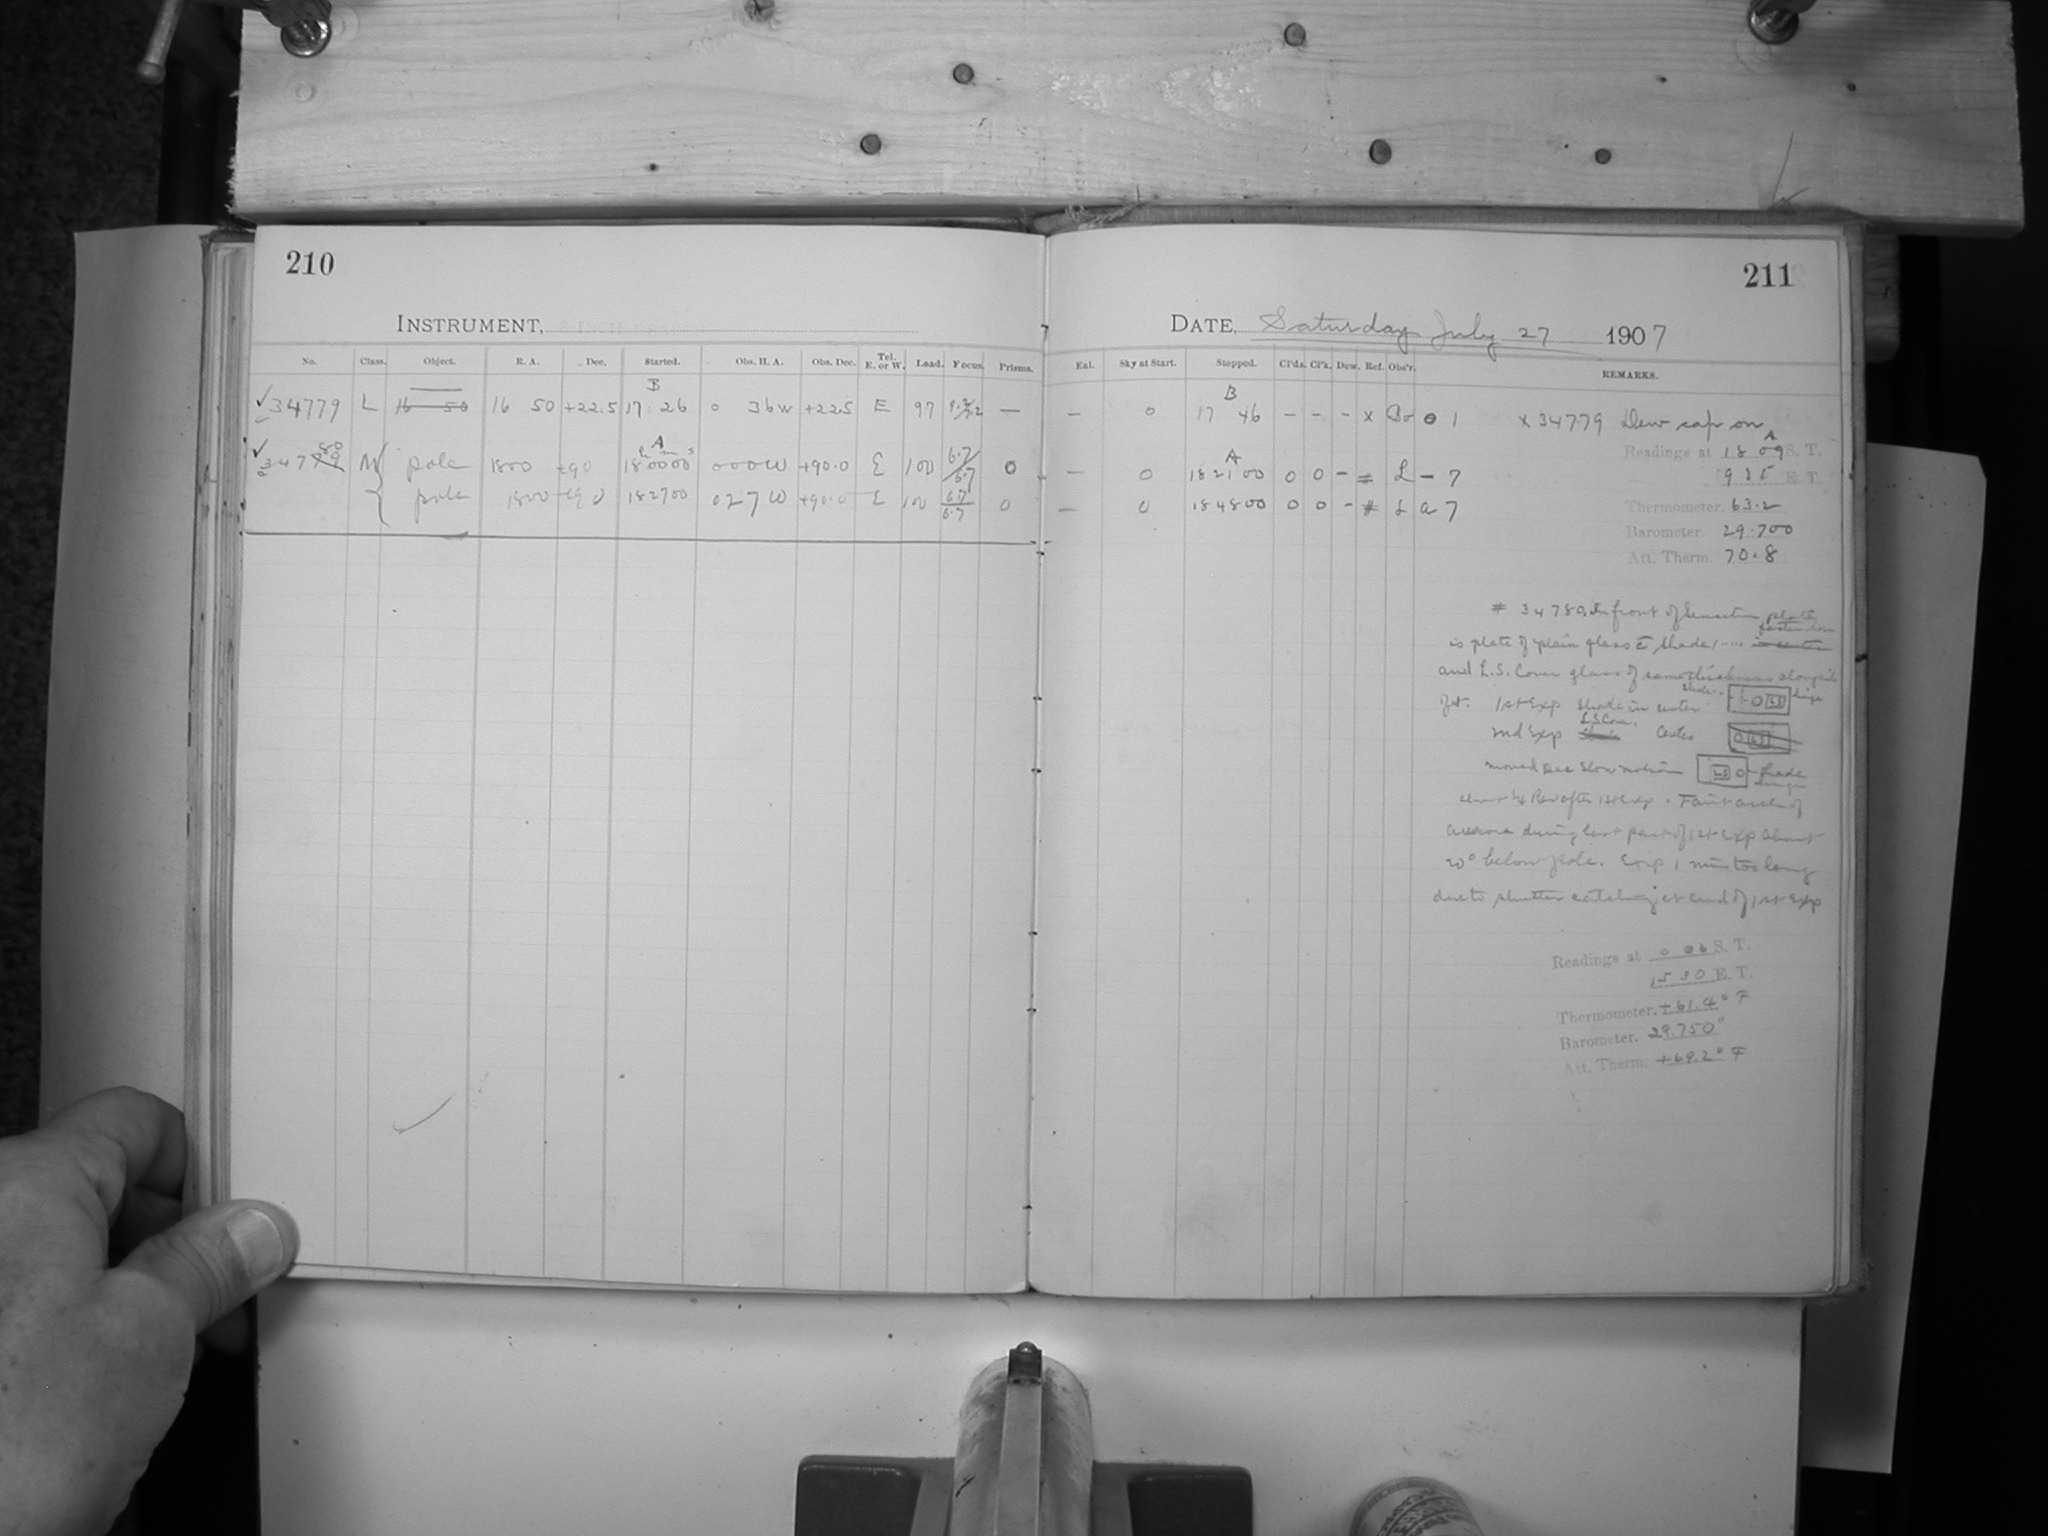 210
INSTRUMENT,
No. Class. Object. R. A. Dec. Started. Obs. H. A. Obs. Dec. Tel. E. or W. Load. Focus. Prisms.
B
✓ 34779 L 16 50 16 50 +22.5 17 26 0 36 W +22.5 E 97 —
A
h m s
✓ 34779 80 M pole 1800 +90 180000 000W +90.0 E 100 6.7/6.7 0
pole 1800 +90 182700 027W +90.0 E 100 6.7/6.7 0
211
DATE, Saturday July 27 1907
Enl. Sky at Start. Stopped. Cl'ds. Cl'k. Dew. Ref. Obs'r. REMARKS.
B
— 0 17 46 – – – x Bo 0 1 x 34779 Dew cap on
A
— 0 182100 0 0 – # L – 7
— 0 184800 0 0 – # L a 7
A
Readings at 18 09 S. T.
E. T.
Thermometer. 63.2
Barometer. 29.700
Att. Therm. 70.8
# 34780. In front of Sensitive plate
is plate of plain glass shade
and L.S. Cover glass of same thickness alongside
of it. 1st Exp shade in center
L.S Cover.
2nd Exp Center
moved Dec slow motion
about 1/4 Rev after 1st Exp. Faint arch of
aurora during last part of 1st Exp about
20° below pole. Exp 1 min too long
due to shutter catching at end of 1st Exp
Readings at 0 06 S. T.
15 30 E. T.
Thermometer. +61.4° F
Barometer. 29.750"
Att. Therm. +69.2° F